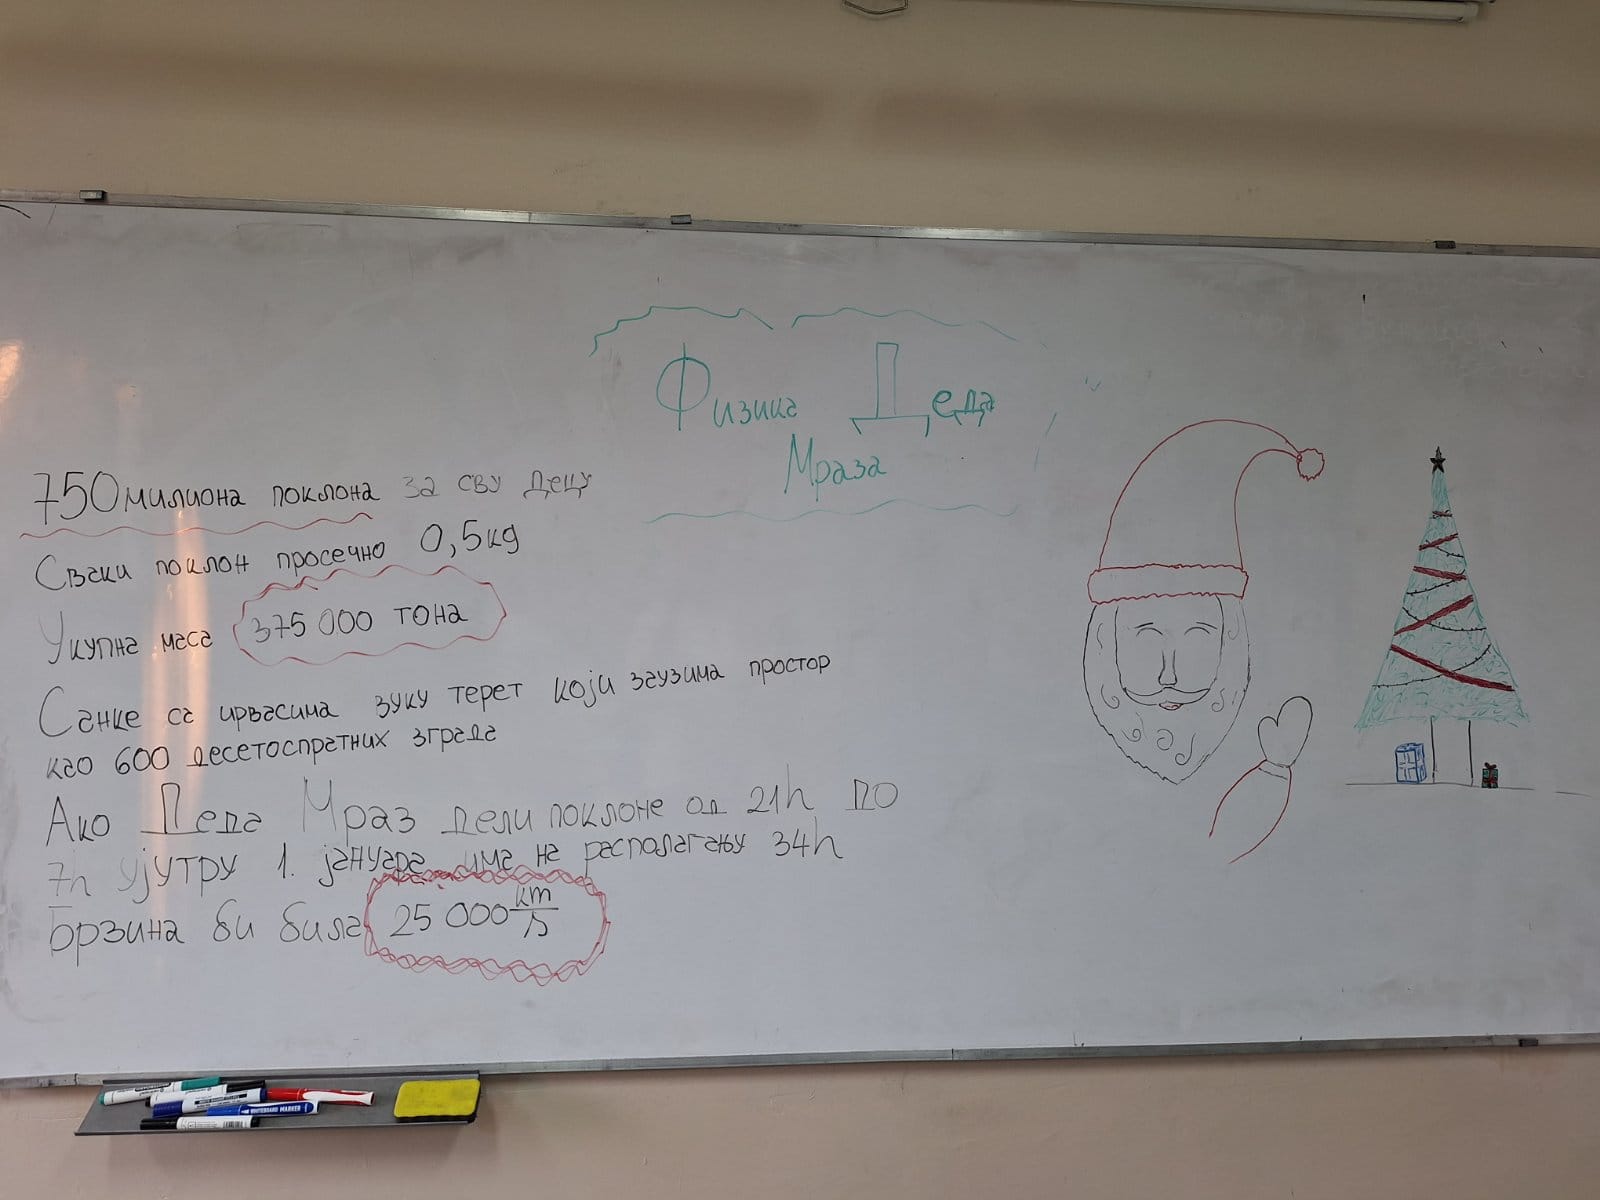 Физика Деда
Мраза
750 милиона поклона за сву децу
Сваки поклон просечно 0,5kg
Укупна маса 375 000 тона
Санке са ирвасима вуку терет који заузима простор
као 600 десетоспратних зграда
Ако Деда Мраз дели поклоне од 21h до
7h ујутру 1. јануара има на располагању 34h
Брзина би била 25 000 km/s
WHITEBOARD MARKER